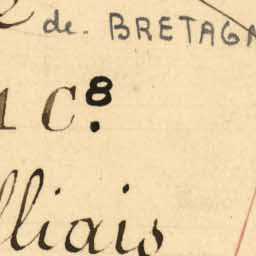 de. BRETAGN
1 C.8
lliais